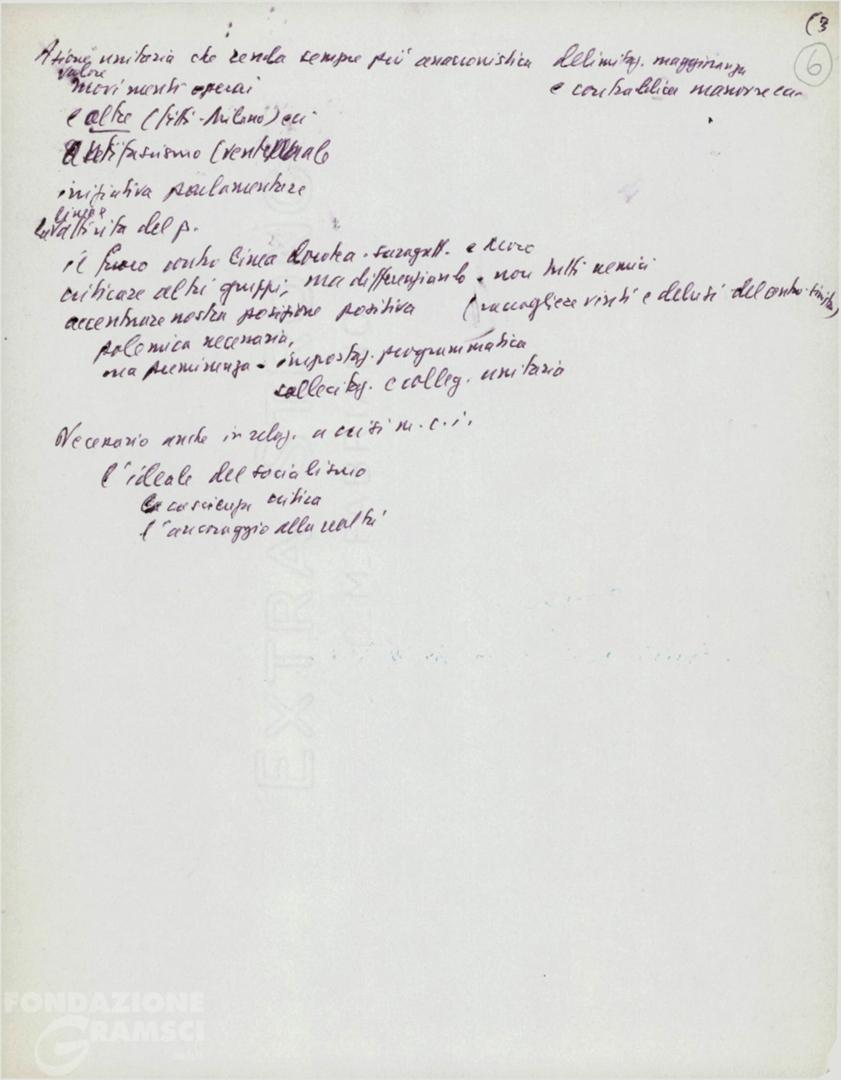 (3
6
Azione unitaria che renda sempre più anacronistica delimitaz. maggioranza
e contrabbia manovre
valore
movimenti operai
e altre (fitti - Milano) ecc
Antifascismo (ventennale
iniziativa parlamentare
linea
attività del p.
il fuoco contro linea dorotea - saragatt. e Moro
criticare altri gruppi, ma differenziando - non tutti nemici
accentuare nostra posizione positiva (raccogliere vinti e delusi del centro-sinistra)
polemica necessaria,
ma preminenza - impostaz. programmatica
sollecitaz. e colleg. unitario
Necessario anche in relaz. a crisi m.c.i.
l'ideale del socialismo
la coscienza critica
l'ancoraggio alla realtà
EXTRA STRONG
FONDAZIONE
GRAMSCI